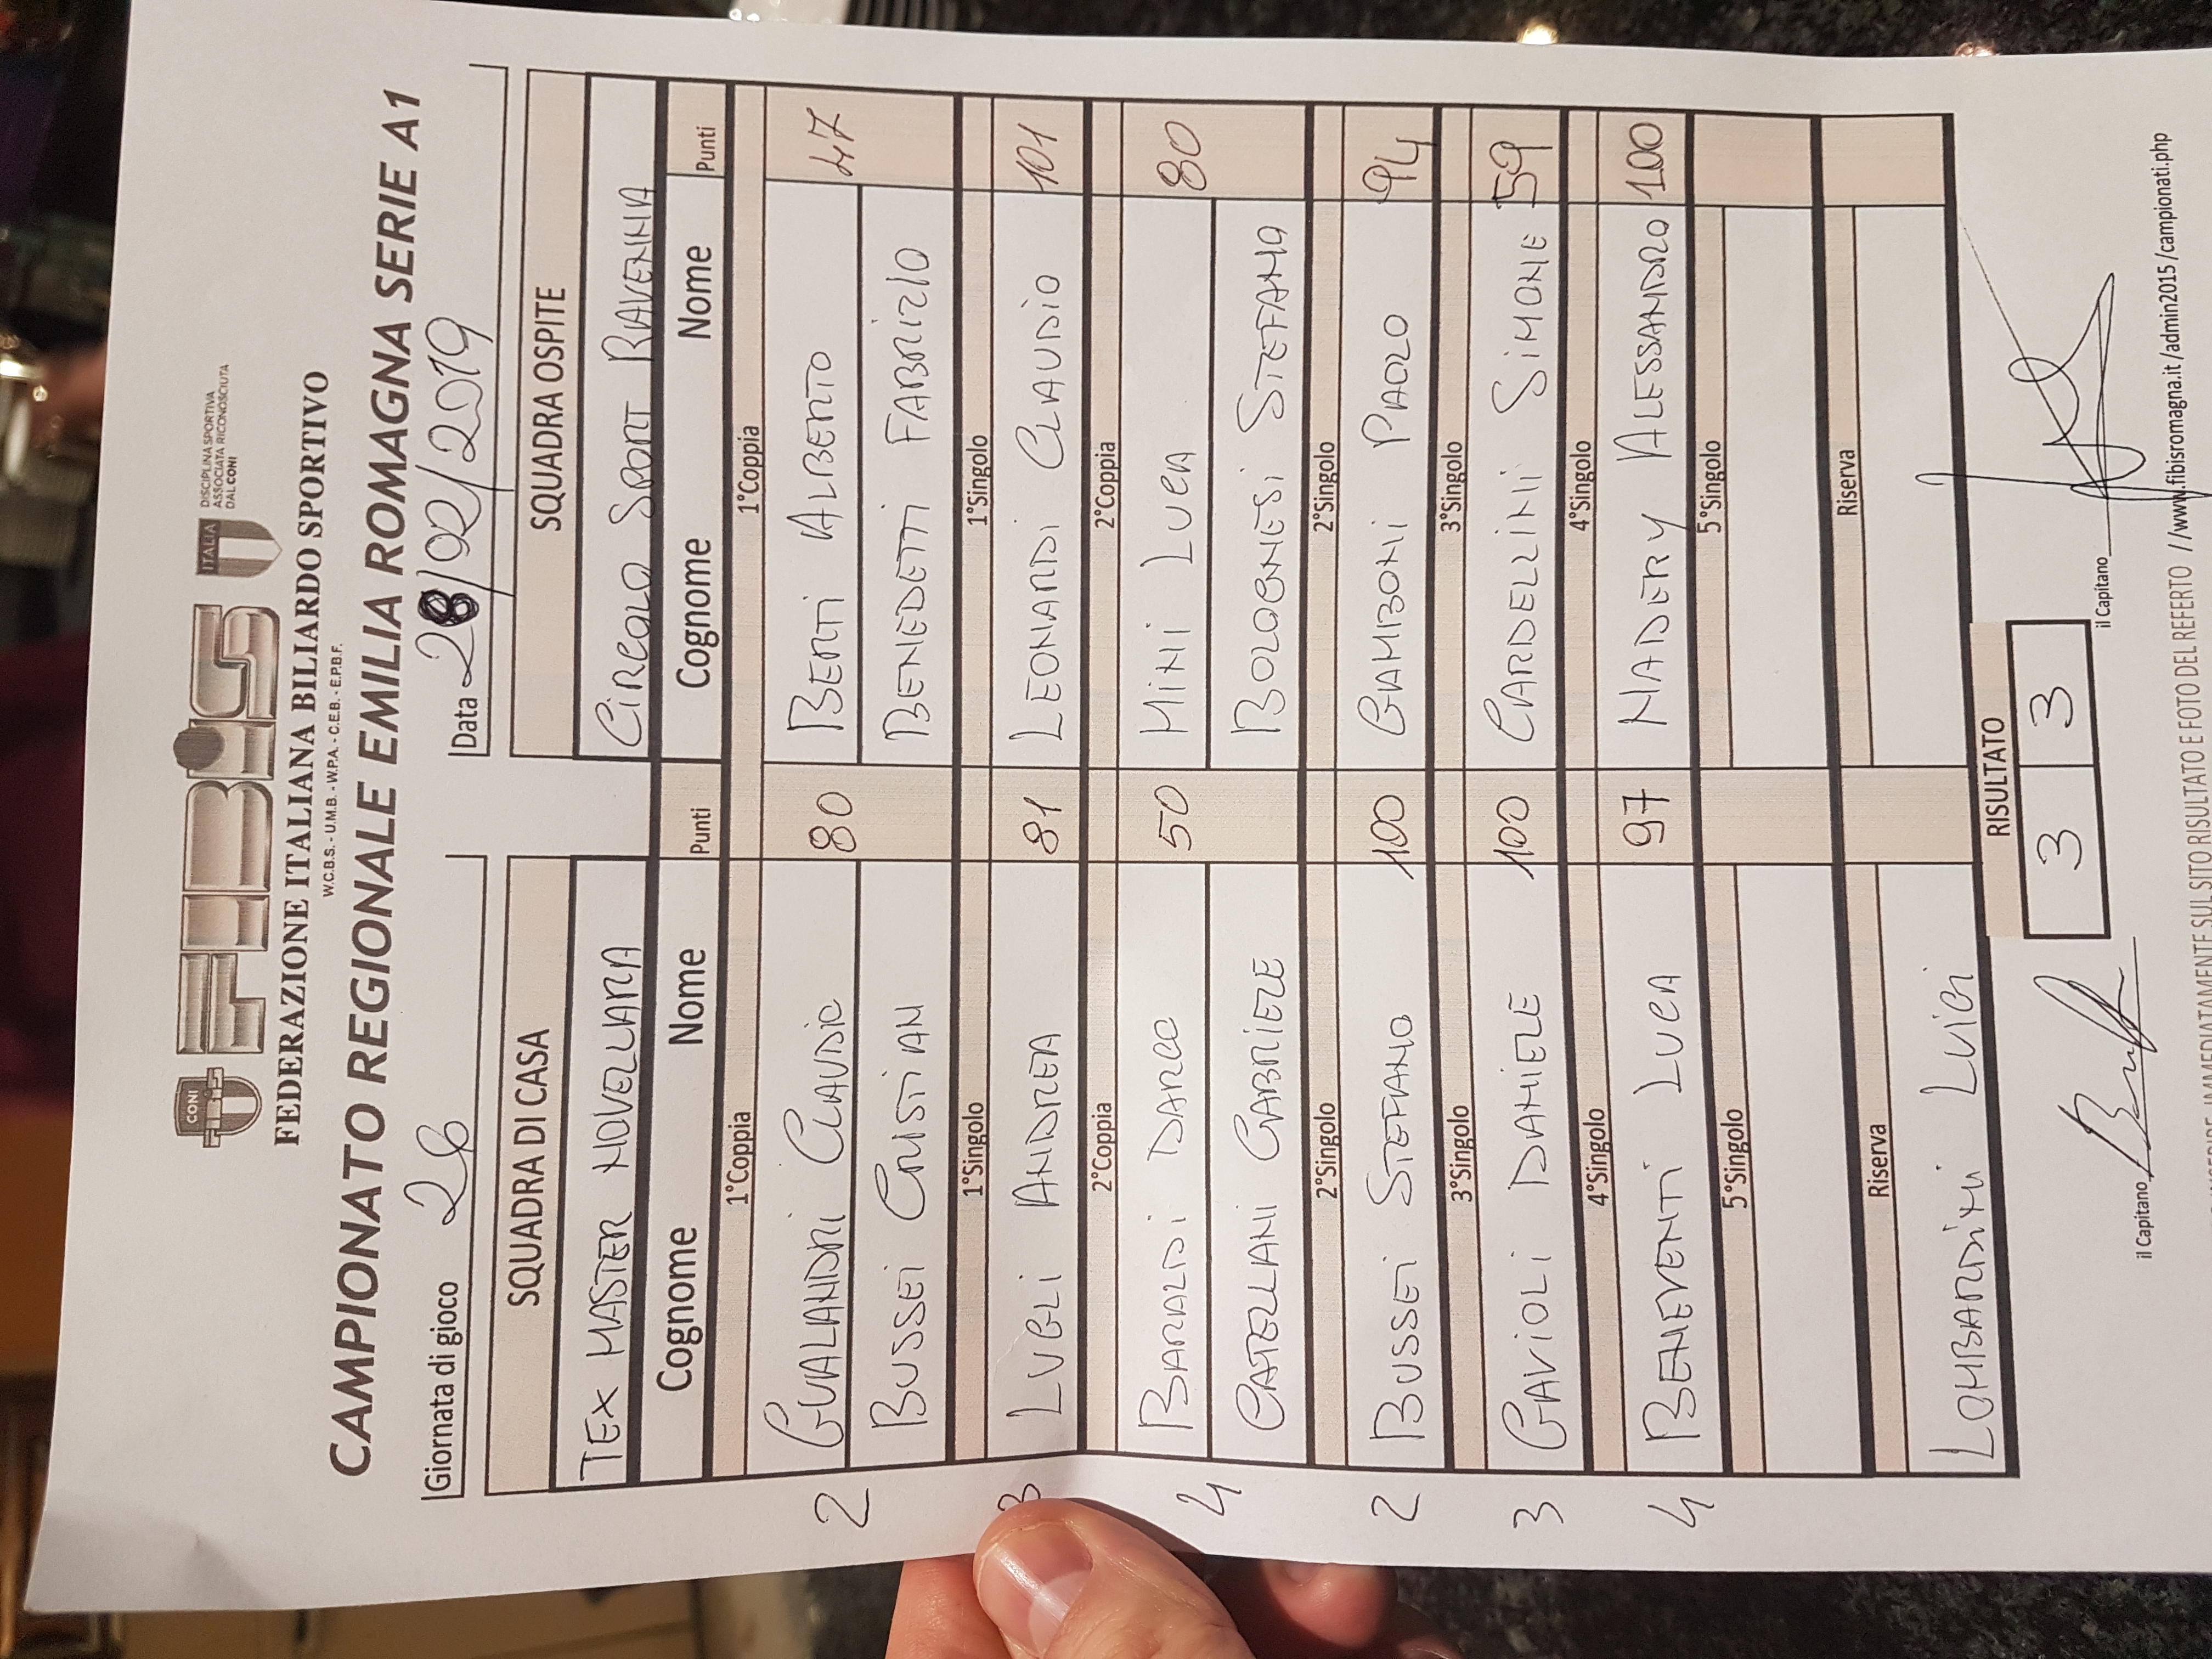 CONI FIBiS ITALIA DISCIPLINA SPORTIVA
ASSOCIATA RICONOSCIUTA
DAL CONI
FEDERAZIONE ITALIANA BILIARDO SPORTIVO
W.C.B.S. - U.M.B. - W.P.A. - C.E.B. - E.P.B.F.
CAMPIONATO REGIONALE EMILIA ROMAGNA SERIE A1
Giornata di gioco Data 28/02/2019
SQUADRA DI CASA SQUADRA OSPITE
TEX MASTER NOVELLARA CIRCOLO SPORT RAVENNA
Cognome Nome Punti Cognome Nome Punti
1°Coppia 1°Coppia
2 GUALANDRI CLAUDIO 80 BERTI ALBERTO 47
BUSSEI CRISTIAN BENEDETTI FABRIZIO
1°Singolo 1°Singolo
3 LUGLI ANDREA 81 LEONARDI CLAUDIO 101
2°Coppia 2°Coppia
4 BARALDI DARCO 50 MINI LUCA 80
CATELLANI GABRIELE BOLOGNESI STEFANO
2°Singolo 2°Singolo
2 BUSSEI STEFANO 100 GAMBONI PAOLO 94
3°Singolo 3°Singolo
3 GAVIOLI DANIELE 100 CARDELLINI SIMONE 59
4°Singolo 4°Singolo
4 BENEVENTI LUCA 97 NADERY ALESSANDRO 100
5°Singolo 5°Singolo
Riserva Riserva
LOMBARDINI LUIGI
RISULTATO
3 3
il Capitano il Capitano
IMMEDIATAMENTE SUL SITO RISULTATO E FOTO DEL REFERTO //www.fibisromagna.it/admin2015/campionati.php